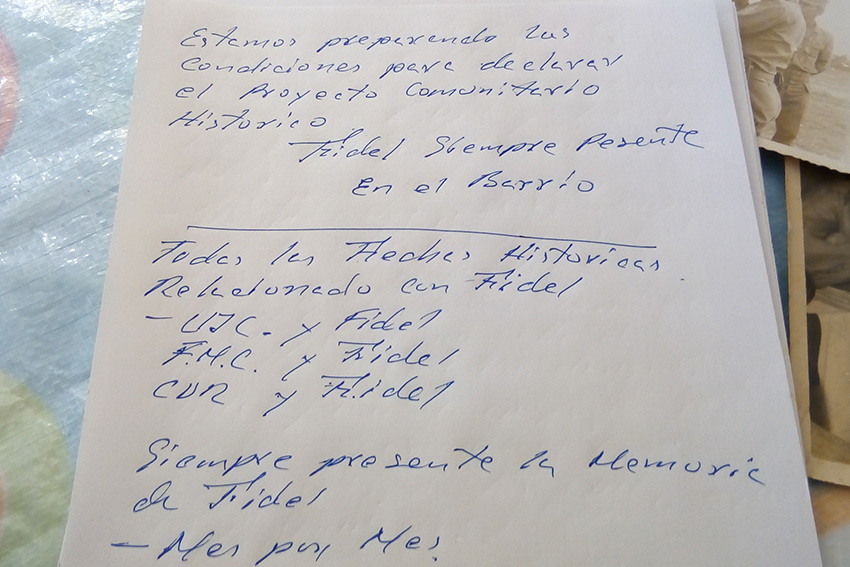 Estamos preparendo las
Condiciones para declarar
el Proyecto Comunitario
Historico
Fidel Siempre Pesente
En el Barrio
Todas las Fechas Historicas
Relacionado con Fidel
- UJC. y Fidel
F.M.C. y Fidel
CDR y Fidel
Siempre presente la Memoria
de Fidel
- Mes por Mes.